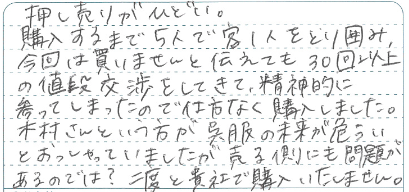 押し売りがひどい。
購入するまで5人で客1人をとり囲み、
今回は買いませんと伝えても30回以上
の値段交渉をしてきて、精神的に
参ってしまったので仕方なく購入しました。
木村さんという方が呉服の未来が危うい
とおっしゃっていましたが売る側にも問題が
あるのでは？二度と貴社で購入いたしません。